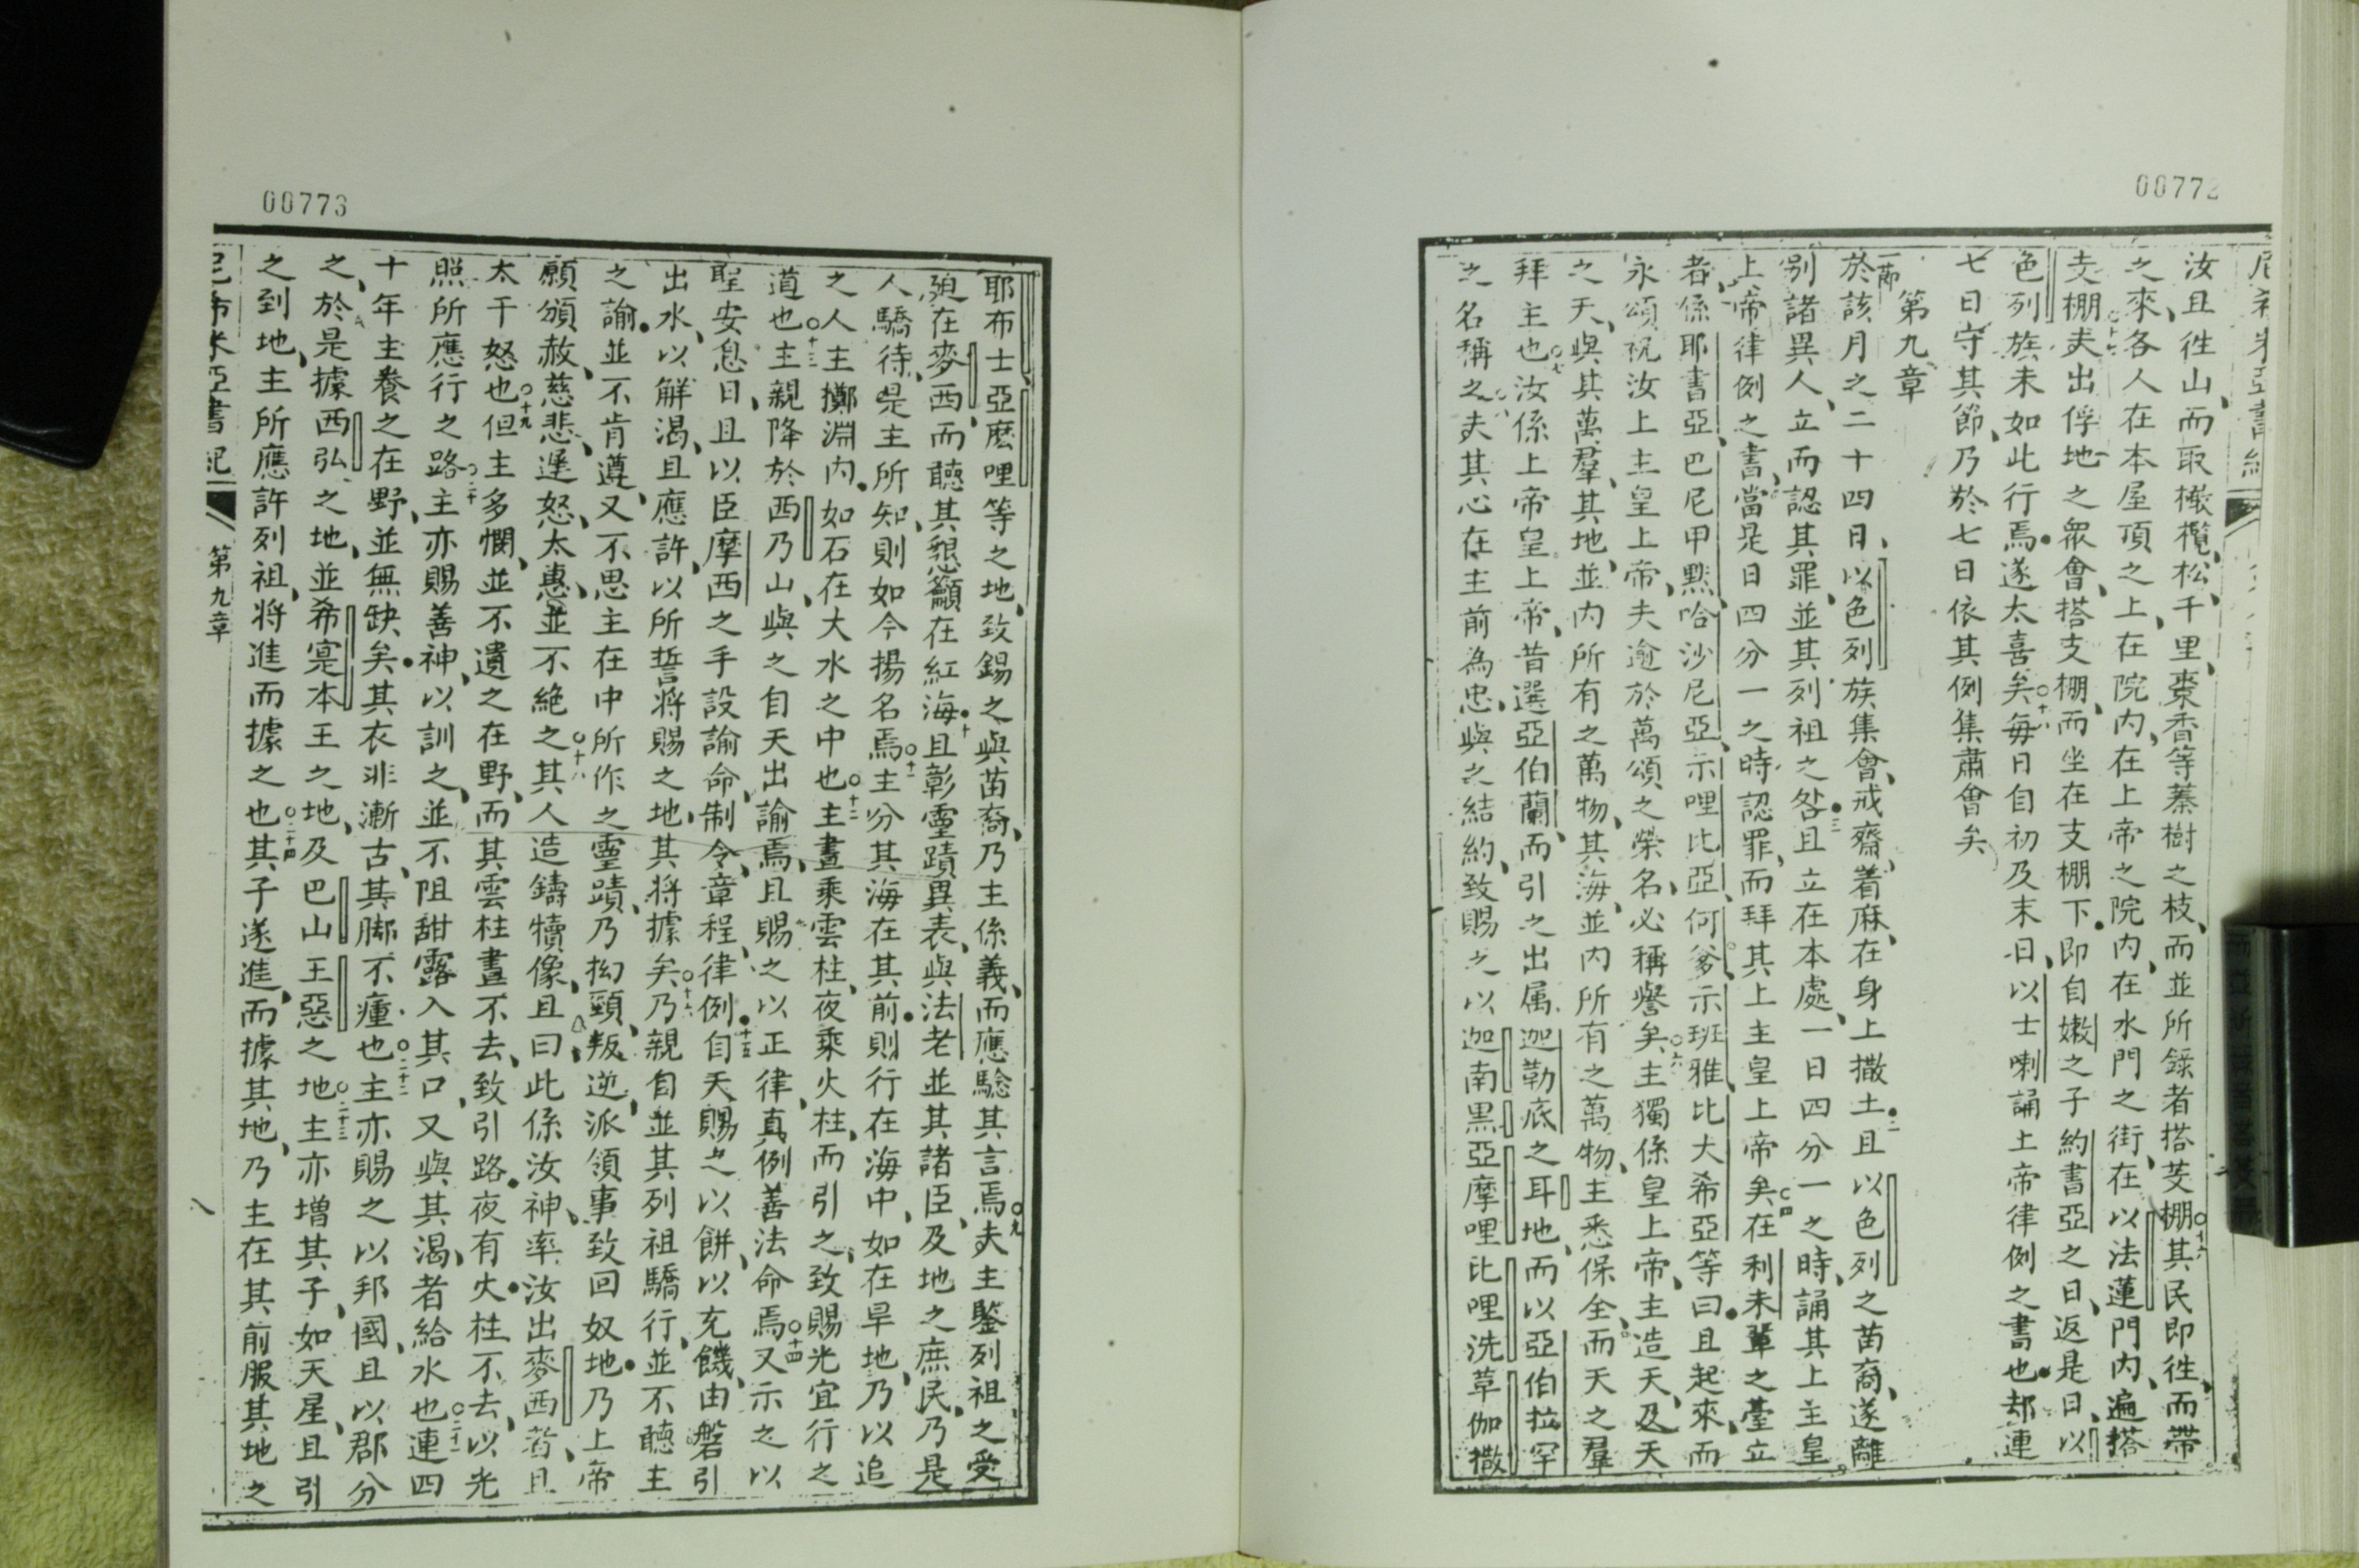 00772
汝且徃山而取橄欖松千里棗香等蓁樹之枝而並所錄者搭支棚○十六其民即徃而帶
之來各人在本屋頂之上在院內在上帝之院內在水門之街在以法蓮門內遍搭
支棚○十七夫出俘地之衆會搭支棚而坐在支棚下即自嫩之子約書亞之日返是日以
色列族未如此行焉遂太喜矣○十八每日自初及末日以士喇誦上帝律例之書也却連
七日守其節乃於七日依其例集肅會矣
第九章
一節於該月之二十四日以色列族集會戒齋着麻在身上撒土二且以色列之苗裔遂離
別諸異人立而認其罪並其列祖之咎三且立在本處一日四分一之時誦其上主皇
上帝律例之書當是日四分一之時認罪而拜其上主皇上帝矣○四在利未輩之臺立
者係耶書亞巴尼甲黙哈沙尼亞示哩比亞何爹示班雅比大希亞等曰且起來而
永頌祝汝上主皇上帝夫逾於萬頌之榮名必稱譽矣○六主獨係皇上帝主造天及天
之天與其萬羣其地並內所有之萬物其海並內所有之萬物主悉保全而天之羣
拜主也○七汝係上帝皇上帝昔選亞伯蘭而引之出属迦勒底之耳地而以亞伯拉罕
之名稱之夫其心在主前為忠與之結約致賜之以迦南黑亞摩哩比哩洗草伽撒
00773
耶布士亞麽哩等之地致錫之與苗裔乃主係義而應騐其言焉○九夫主鑒列祖之受
廹在麥西而聽其懇籲在紅海十且彰靈蹟異表與法老並其諸臣及地之庶民乃是
人驕待是主所知則如今揚名焉○十一主分其海在其前則行在海中如在旱地乃以追
之人主擲淵內如石在大水之中也○十二主晝乘雲柱夜乘火柱而引之致賜光宜行之
道也○十三主親降於西乃山與之自天出諭焉且賜之以正律真例善法命焉○十四又示之以
聖安息日且以臣摩西之手設諭命制令章程律例十五自天賜之以餅以充饑由磐引
出水以解渴且應許以所誓將賜之地其將據矣○十六乃親自並其列祖驕行並不聽主
之諭並不肯遵又不思主在中所作之靈蹟乃拗頸叛逆派領事致回奴地乃上帝
願頒赦慈悲遲怒太惠並不絶之○十八其人造鑄犢像且曰此係汝神率汝出麥西者且
太干怒也○十九但主多憫並不遺之在野而其雲柱晝不去致引路夜有火柱不去以光
照所應行之路○二十主亦賜善神以訓之並不阻甜露入其口又與其渴者給水也○二十一連四
十年主養之在野並無缺矣其衣非漸古其脚不瘇也○二十二主亦賜之以邦國且以郡分
之於是據西弘之地並希寔本王之地及巴山王惡之地○二十三主亦増其子如天星且引
之到地主所應許列祖將進而據之也○二十四其子遂進而據其地乃主在其前服其地之
尼希米亞書紀 第九章